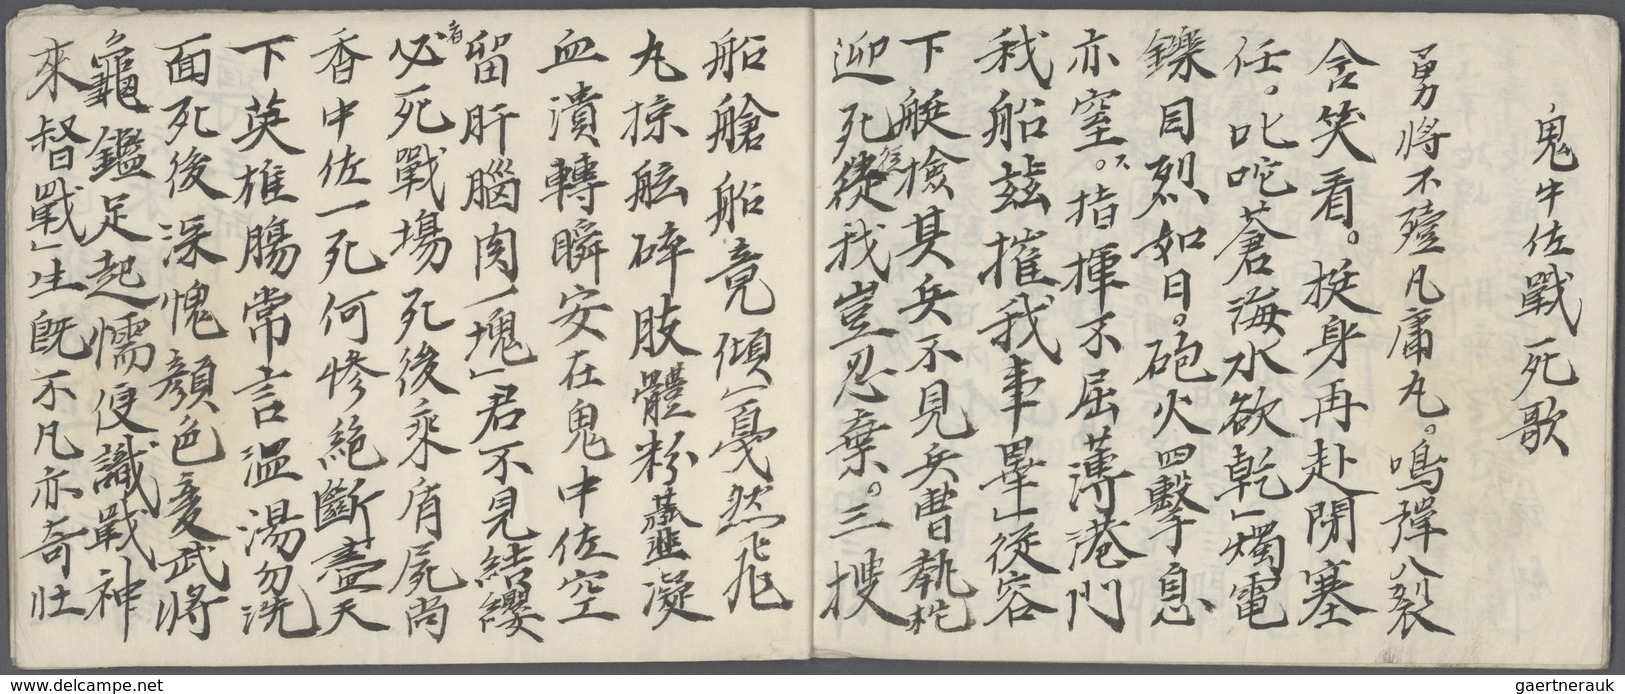 鬼中佐戰死歌
勇將不殪凡庸丸。鳴彈八裂
含笑看。挺身再赴閉塞
任。叱咤蒼海水欲乾」燭電
鑠目烈如日。砲火四擊息
亦窒。指揮不屈薄港門
我船玆摧我事畢」從容
下艇檢其兵不見兵曹執
迎死徒我豈忍棄。三搜
船艙船竟傾」戞然飛
丸掠舷碎肢體粉韲凝
血潰轉瞬安在鬼中佐空
留肝腦肉一塊」君不見結纓
必死戰場死後乘盾屍尚
者
香中佐一死何慘絶斷盡天
下英雄腸常言温湯勿洗
面死後深愧顏色變武將
龜鑑足起懦侵識戰神
來督戰」生既不凡亦奇壮
gaertnerauk